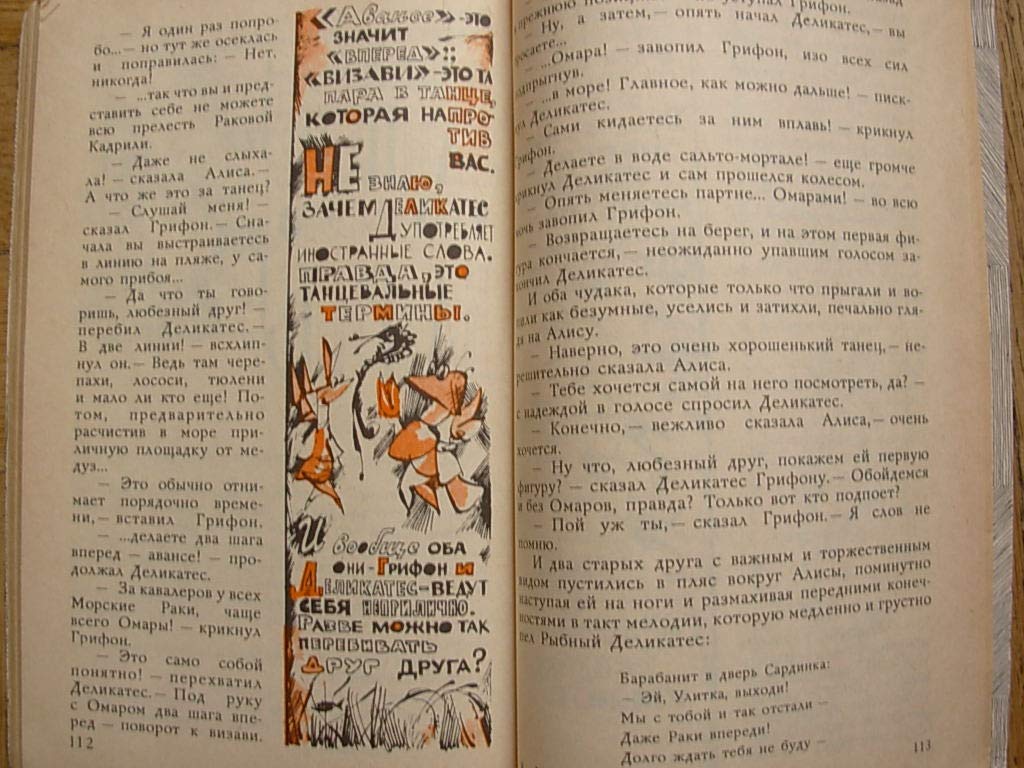 — Я один раз попро-
бо...— но тут же осеклась
и поправилась: — Нет,
никогда!
— ...так что вы и пред-
ставить себе не можете
всю прелесть Раковой
Кадрили.
— Даже не слыха-
ла! — сказала Алиса.—
А что же это за танец?
— Слушай меня! —
сказал Грифон.— Сна-
чала вы выстраиваетесь
в линию на пляже, у са-
мого прибоя...
— Да что ты гово-
ришь, любезный друг! —
перебил Деликатес.—
В две линии! — всхлип-
нул он.— Ведь там чере-
пахи, лососи, тюлени
и мало ли кто еще! По-
том, предварительно
расчистив в море при-
личную площадку от ме-
дуз...
— Это обычно отни-
мает порядочно време-
ни,— вставил Грифон.
— ...делаете два шага
вперед — авансе! — про-
должал Деликатес.
— За кавалеров у всех
Морские Раки, чаще
всего Омары! — крикнул
Грифон.
— Это само собой
понятно! — перехватил
Деликатес.— Под руку
с Омаром два шага впе-
ред — поворот к визави.
112
«Авансе» - это
значит
«вперед»;
«визави» - это та
пара в танце,
которая напро
тив
вас.
Не знаю,
зачем Деликатес
употребляет
иностранные слова.
Правда, это
танцевальные
термины.
И вообще оба
они - Грифон и
Деликатес - ведут
себя неприлично.
Разве можно так
перебивать
друг друга?
прежнюю уступал Грифон.
— Ну, а затем,— опять начал Деликатес,— вы
— ...Омара! — завопил Грифон, изо всех сил
— ...в море! Главное, как можно дальше! — писк-
нул Деликатес.
— Сами кидаетесь за ним вплавь! — крикнул
Грифон.
— Делаете в воде сальто-мортале! — еще громче
крикнул Деликатес и сам прошелся колесом.
— Опять меняетесь партне... Омарами! — во всю
мочь завопил Грифон.
— Возвращаетесь на берег, и на этом первая фи-
гура кончается,— неожиданно упавшим голосом за-
кончил Деликатес.
И оба чудака, которые только что прыгали и во-
пили как безумные, уселись и затихли, печально гля-
дя на Алису.
— Наверно, это очень хорошенький танец,— не-
решительно сказала Алиса.
— Тебе хочется самой на него посмотреть, да? —
с надеждой в голосе спросил Деликатес.
— Конечно,— вежливо сказала Алиса,— очень
хочется.
— Ну что, любезный друг, покажем ей первую
фигуру? — сказал Деликатес Грифону.— Обойдемся
и без Омаров, правда? Только вот кто подпоет?
— Пой уж ты,— сказал Грифон.— Я слов не
помню.
И два старых друга с важным и торжественным
видом пустились в пляс вокруг Алисы, поминутно
наступая ей на ноги и размахивая передними конеч-
ностями в такт мелодии, которую медленно и грустно
пел Рыбный Деликатес:
Барабанит в дверь Сардинка:
— Эй, Улитка, выходи!
Мы с тобой и так отстали —
Даже Раки впереди!
Долго ждать тебя не буду —
113